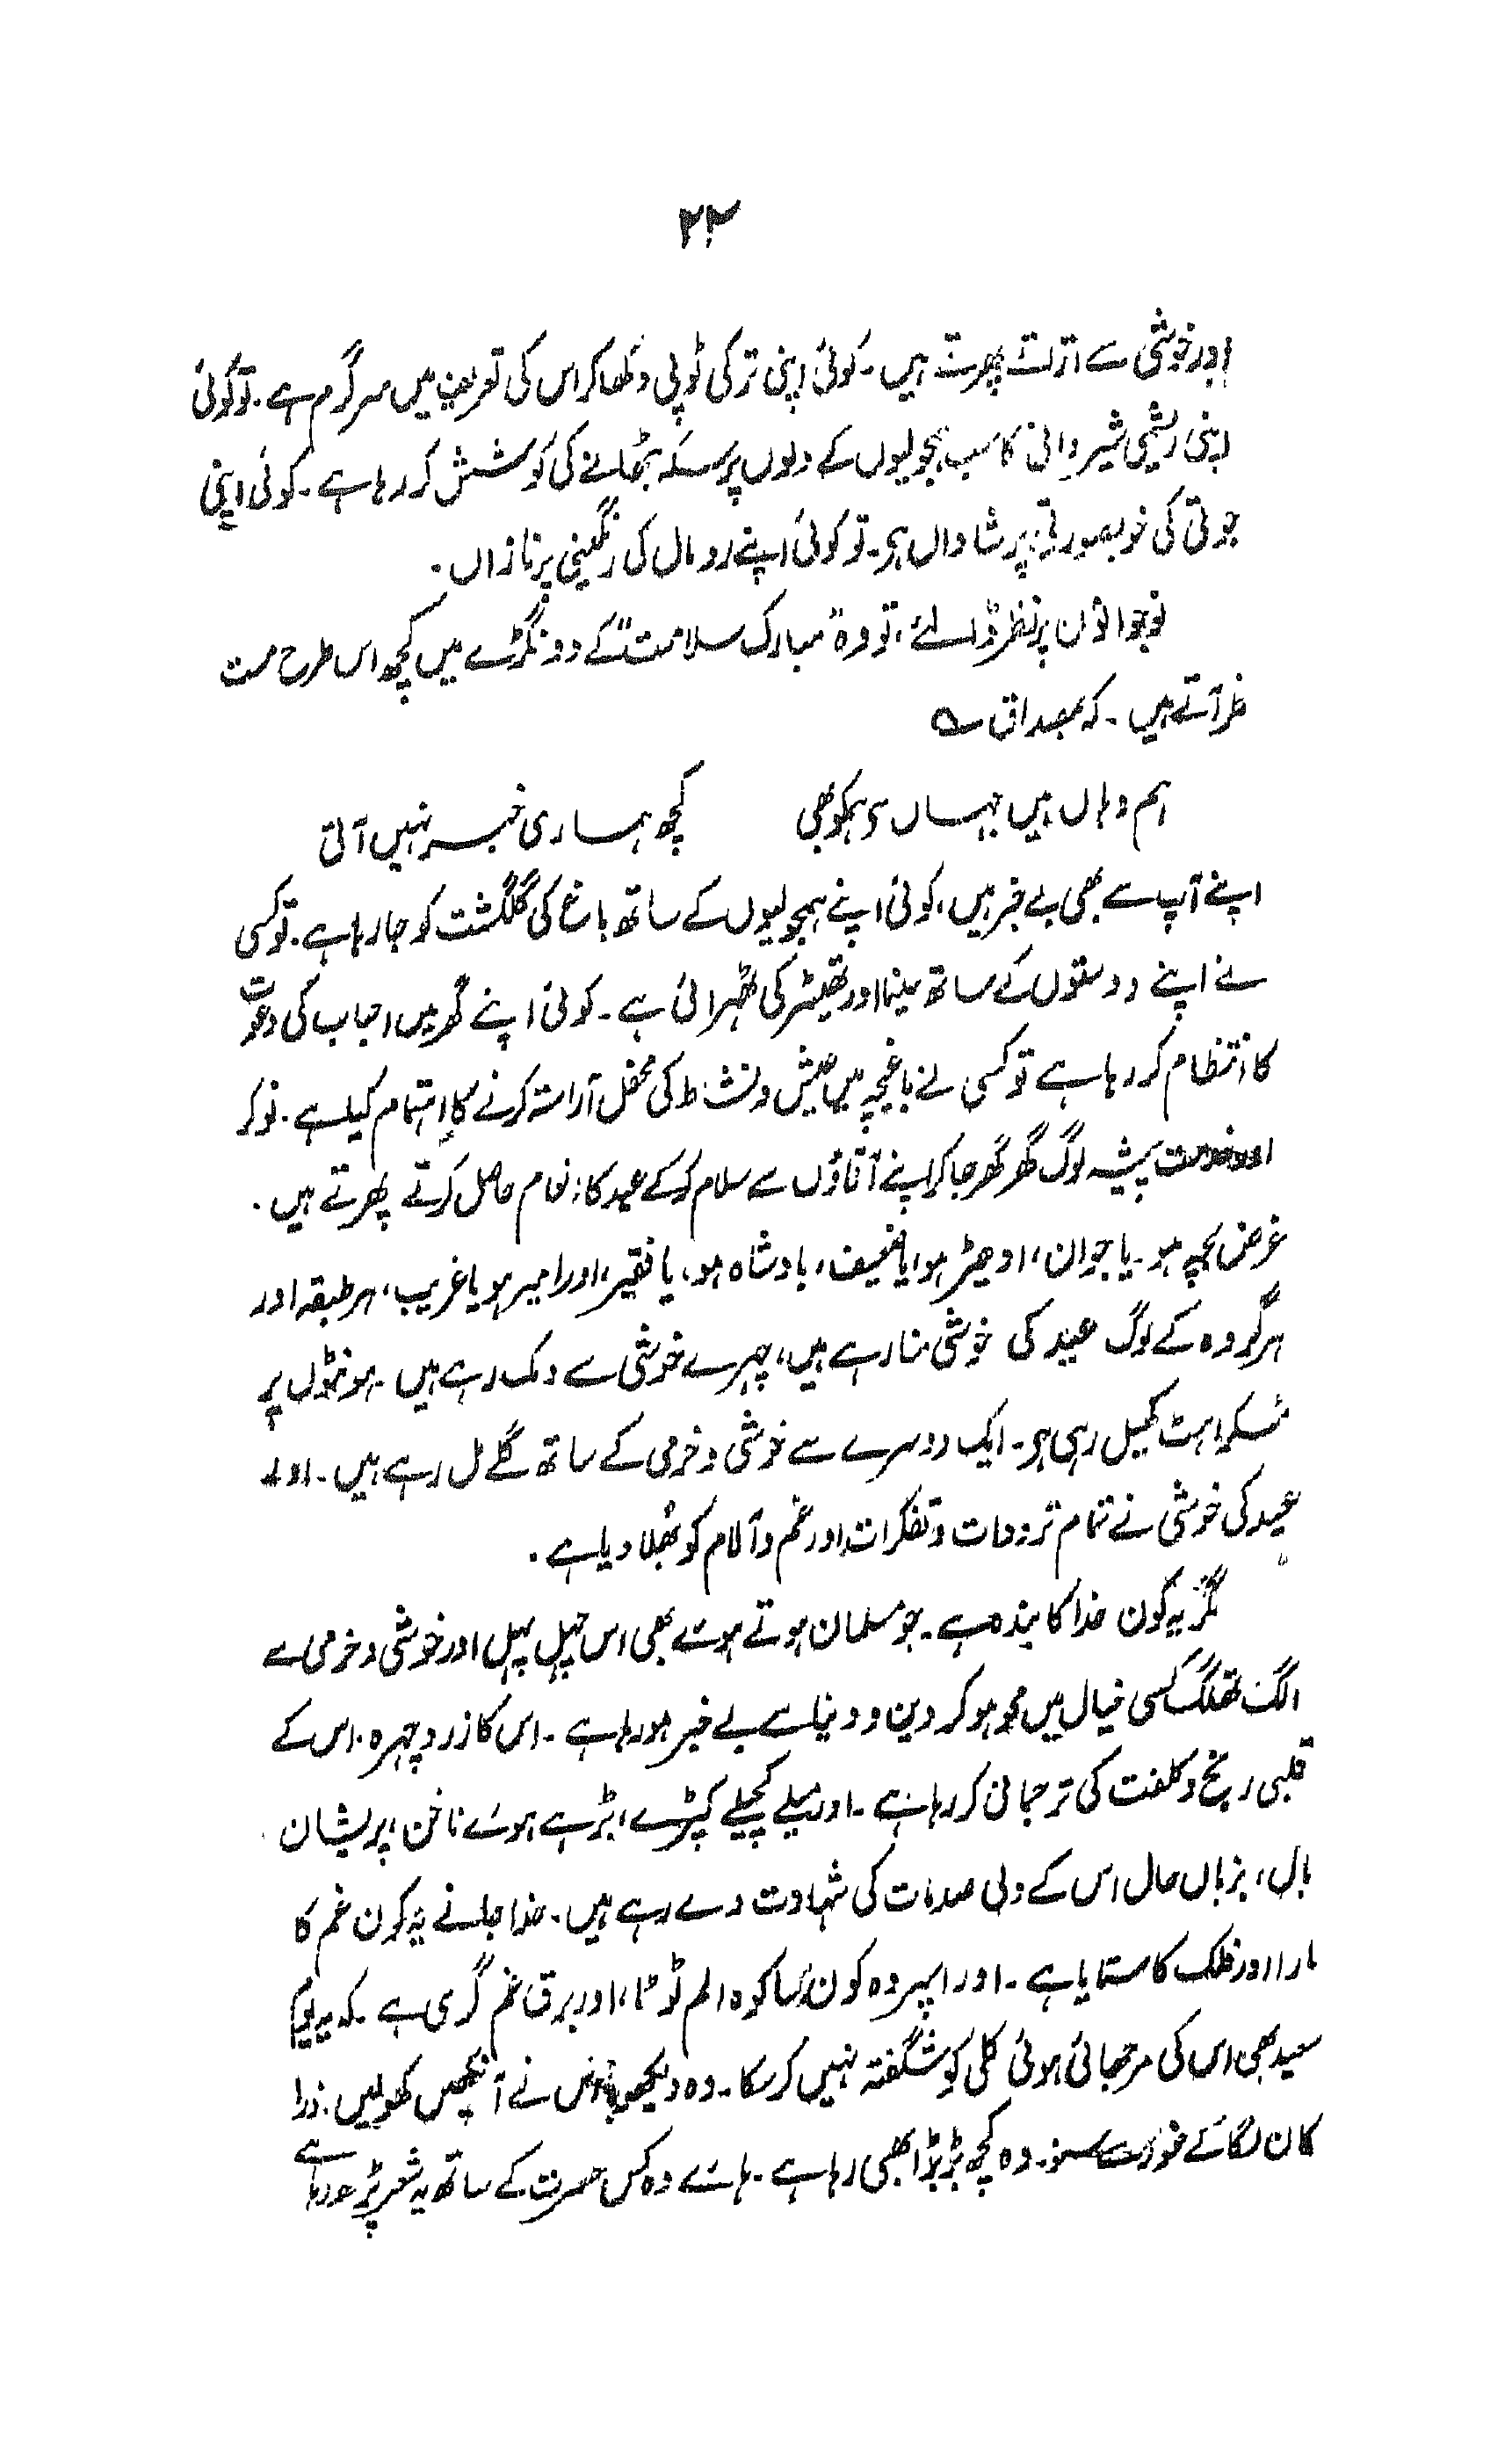 ۲۲
اور خوشی سے اتراتے پھرتے ہیں۔ کوئی اپنی ترکی ٹوپی دکھا کر اس کی تعریف میں سرگرم ہے۔ تو کوئی
اپنی ریشمی شیروانی کا سب ہمجولیوں کے دلوں پر سکہ بٹھانے کی کوشش کر رہا ہے۔ کوئی اپنی
جوتی کی خوبصورتی پر شاداں ہے۔ تو کوئی اپنے رومال کی رنگینی پر نازاں۔
نوجوانوں پر نظر ڈالئے، تو وہ "مبارک سلامت" کے دونگڑے میں کچھ اس طرح مست
نظر آتے ہیں۔ کہ بمصداق ؎
ہم وہاں ہیں جہاں سے ہمکو بھی کچھ ہماری خبر نہیں آتی
اپنے آپ سے بھی بے خبر ہیں، کوئی اپنے ہمجولیوں کے ساتھ باغ کی گلگشت کو جا رہا ہے۔ تو کسی
نے اپنے دوستوں کے ساتھ سینما اور تھیٹر کی ٹھہرائی ہے۔ کوئی اپنے گھر میں احباب کی دعوت
کا انتظام کر رہا ہے تو کسی نے باغیچہ میں عیش و نشاط کی محفل آراستہ کرنے کا اہتمام کیا ہے۔ نوکر
اور خدمت پیشہ لوگ گھر گھر جا کر اپنے آقاؤں سے سلام کر کے عید کا انعام حاصل کرتے پھرتے ہیں۔
غرض بچہ ہو۔ یا جوان، ادھیڑ ہو، یا ضعیف، بادشاہ ہو، یا فقیر، اور امیر ہو یا غریب، ہر طبقہ اور
ہر گروہ کے لوگ عید کی خوشی منا رہے ہیں، چہرے خوشی سے دمک رہے ہیں۔ ہونٹوں پر
مسکراہٹ کھیل رہی ہے۔ ایک دوسرے سے خوشی و خرمی کے ساتھ گلے مل رہے ہیں۔ اور
عید کی خوشی نے تمام ترددات و تفکرات اور غم و آلام کو بھلا دیا ہے۔
مگر یہ کون خدا کا بندہ ہے۔ جو مسلمان ہوتے ہوئے بھی اس چہل پہل اور خوشی و خرمی سے
الگ تھلگ کسی خیال میں محو ہو کر دین و دنیا سے بے خبر ہو رہا ہے۔ اس کا زرد چہرہ۔ اس کے
قلبی رنج و کلفت کی ترجمانی کر رہا ہے۔ اور میلے کچیلے کپڑے، بڑے ہوئے ناخن، پریشان
بال، بزباں حال اس کے دلی صدمات کی شہادت دے رہے ہیں۔ خدا جانے یہ کون غم کا
مارا اور فلک کا ستایا ہے۔ اور اسپر وہ کون سا کوہ الم ٹوٹا، اور برق غم گری ہے۔ کہ یہ یوم
سعید بھی اس کی مرجھائی ہوئی کلی کو شگفتہ نہیں کر سکا۔ وہ دیکھو اس نے آنکھیں کھولیں۔ ذرا
کان لگا کے غور سے سنو۔ وہ کچھ بڑبڑا بھی رہا ہے۔ ہائے وہ کس حسرت کے ساتھ یہ شعر پڑھ رہا ہے